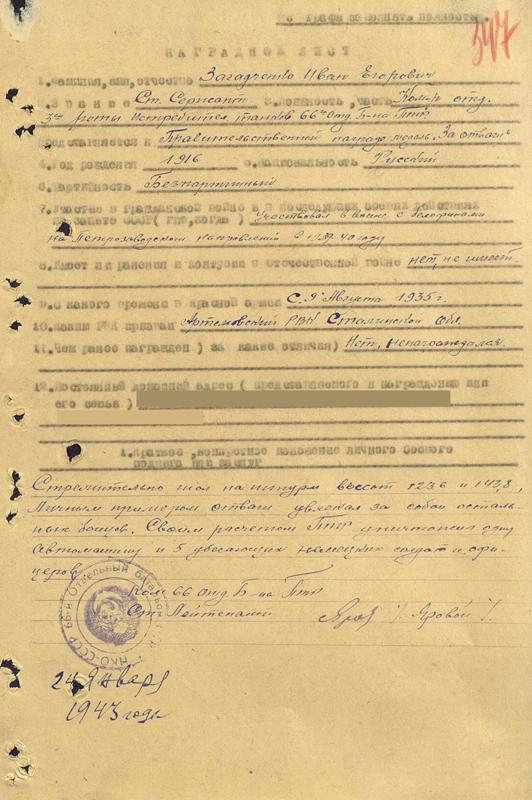 347
НАГРАДНОЙ ЛИСТ
1. Фамилия, имя, отчество Загадченко Иван Егорович
2. Звание Ст. Сержант 3. Должность, часть Ком-р отд.
3ей роты Истребител. танков 66 Отд. Б-на ПТР
представляется к Правительственной награде медаль "За отвагу"
4. Год рождения 1916 5. Национальность Русский
6. Партийность Безпартийный
7. Участие в гражданской войне и последующих боевых действиях
по защите СССР (где, когда) Участвовал в войне с белофинами
на Петрозаводском направлений в 1939-40 году
8. Имеет ли ранения и контузии в отечественной войне нет, не имеет.
9. С какого времени в красной армии С 9 Августа 1935 г.
10. Каким РВК призван Артемовский РВК Сталинской обл.
11. Чем ранее награжден (за какие отличия) Нет, ненаграждался.
12. Постоянный домашний адрес (представляемого к награждению или
его семьи)
1. Краткое, конкретное изложение личного боевого
подвига или заслуг
Стремительно шол на штурм высот 123,6 и 143,8,
Личным примером отваги увлекал за собой осталь-
ных бойцов. Своим расчетом ПТР уничтожил одну
Автомашину и 5 убегающих немецких солдат и офи-
церов
Ком 66 отд. Б-на ПТР
Ст. Лейтенант / Яровой /
66-й Отдельный Батальон
НКО-СССР
24 Января
1943 года